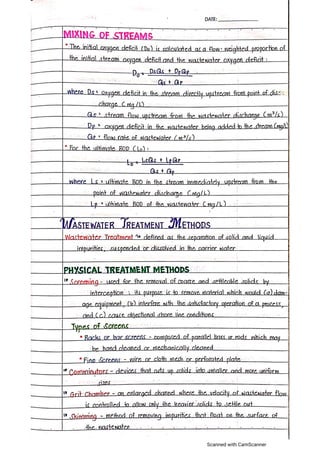 DATE:
MIXING OF STREAMS
* The initial oxygen deficit (Do) is calculated as a flow-weighted proportion of
the initial stream oxygen deficit and the wastewater oxygen deficit :
Do = DsQs + DpQp
Qs + Qp
where Ds = oxygen deficit in the stream directly upstream from point of dis-
charge (mg/L)
Qs = stream flow upstream from the wastewater discharge (m³/s)
Dp = oxygen deficit in the wastewater being added to the stream (mg/L)
Qp = flow rate of wastewater (m³/s)
* For the ultimate BOD (Lo) :
Lo = LsQs + LpQp
Qs + Qp
where Ls = ultimate BOD in the stream immediately upstream from the
point of wastewater discharge (mg/L)
Lp = ultimate BOD of the wastewater (mg/L)
WASTEWATER TREATMENT METHODS
Wastewater Treatment defined as the separation of solid and liquid
impurities, suspended or dissolved in the carrier water
PHYSICAL TREATMENT METHODS
Screening - used for the removal of coarse and settleable solids by
interception ; its purpose is to remove material which would (a) dam-
age equipment, (b) interfere with the satisfactory operation of a process,
and (c) cause objectional shore line conditions
Types of Screens
* Racks or bar screens - composed of parallel bars or rods which may
be hand cleaned or mechanically cleaned
* Fine Screens - wire or cloth mesh or perforated plate
Comminutors - devices that cuts up solids into smaller and more uniform
sizes
Grit Chamber - an enlarged channel where the velocity of wastewater flow
is controlled to allow only the heavier solids to settle out
Skimming - method of removing impurities that float on the surface of
the wastewater
Scanned with CamScanner